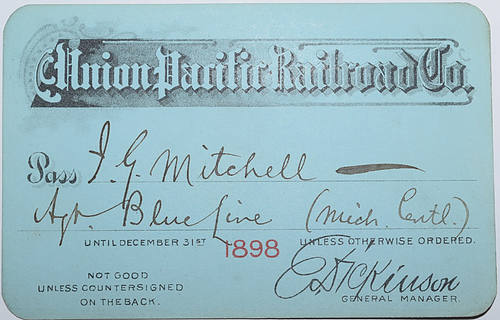 Union Pacific Railroad Co.
Pass J. G. Mitchell
Agt. Blue Line (Mich. Centl.)
UNTIL DECEMBER 31ST 1898 UNLESS OTHERWISE ORDERED.
NOT GOOD
UNLESS COUNTERSIGNED
ON THE BACK.
E Dickinson
GENERAL MANAGER.